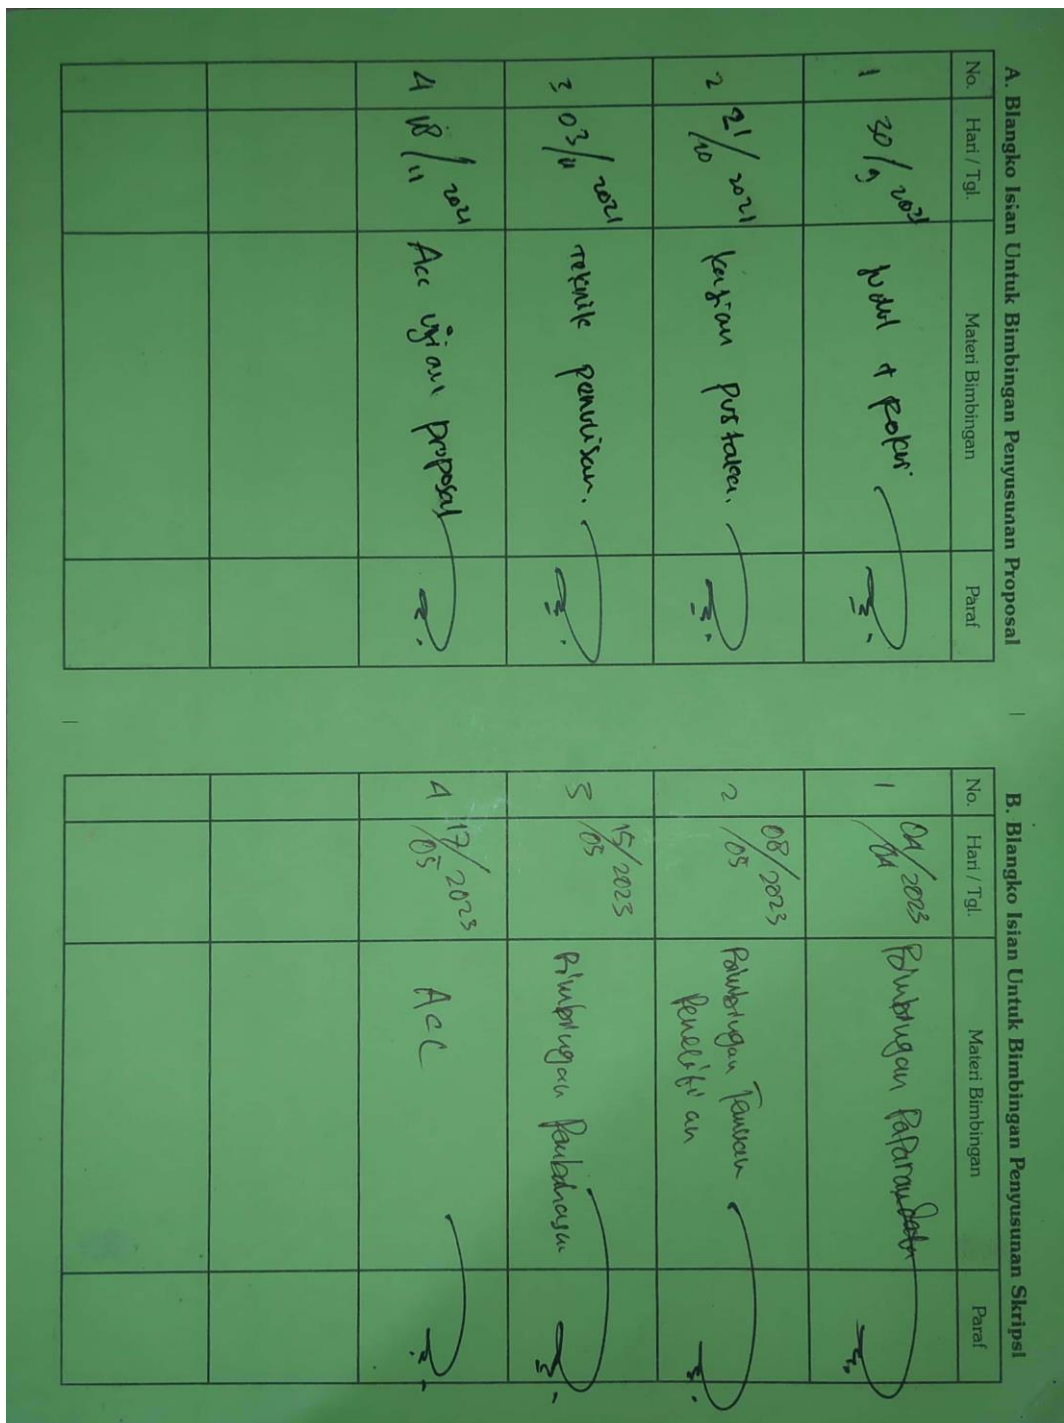 A. Blangko Isian Untuk Bimbingan Penyusunan Proposal
No. Hari / Tgl. Materi Bimbingan Paraf
1 30/9 2021 Judul + Fokus
2 21/10 2021 kajian pustaka.
3 03/11 2021 Teknik penulisan.
4 18/11 2021 Acc ujian proposal
B. Blangko Isian Untuk Bimbingan Penyusunan Skripsi
No. Hari / Tgl. Materi Bimbingan Paraf
1 04/04 2023 Bimbingan Paparan data
2 08/05 2023 Bimbingan Temuan
Penelitian
3 15/05 2023 Bimbingan Pembahasan
4 17/05 2023 ACC